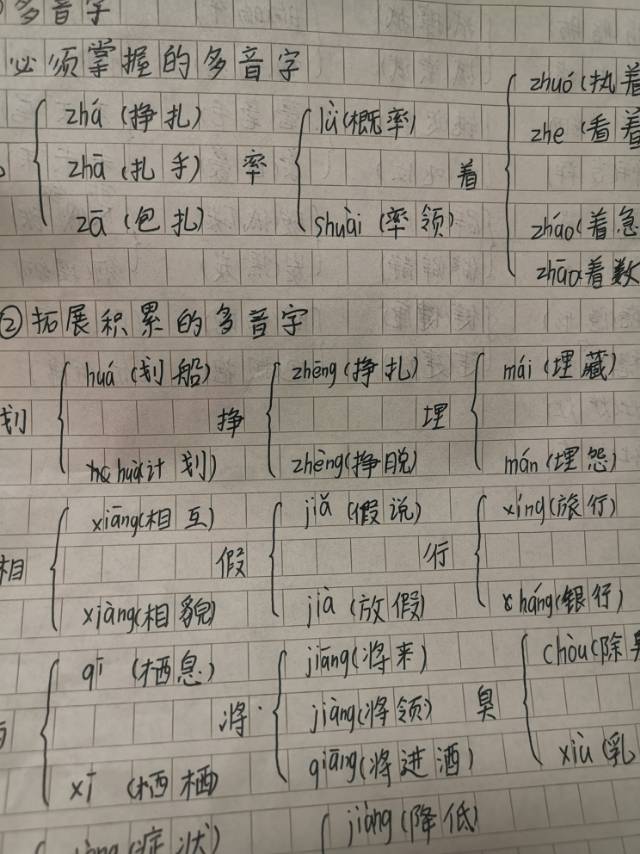 多音字
必须掌握的多音字
zhá (挣扎) lǜ (概率) zhuó (执着
zhā (扎手) 率 着 zhe (看着
zā (包扎) shuài (率领) zháo (着急
zhāo 着数
②拓展积累的多音字
huá (划船) zhēng (挣扎) mái (埋藏)
划 挣 埋
huà 计划) zhèng (挣脱) mán (埋怨)
xiāng (相互) jiǎ (假说) xíng (旅行)
相 假 行
xiàng (相貌) jià (放假) háng (银行)
qī (栖息) jiāng (将来) chòu (除臭
将 jiàng (将领) 臭
xī (栖栖) qiāng (将进酒) xiù (乳
(症状) jiàng (降低)